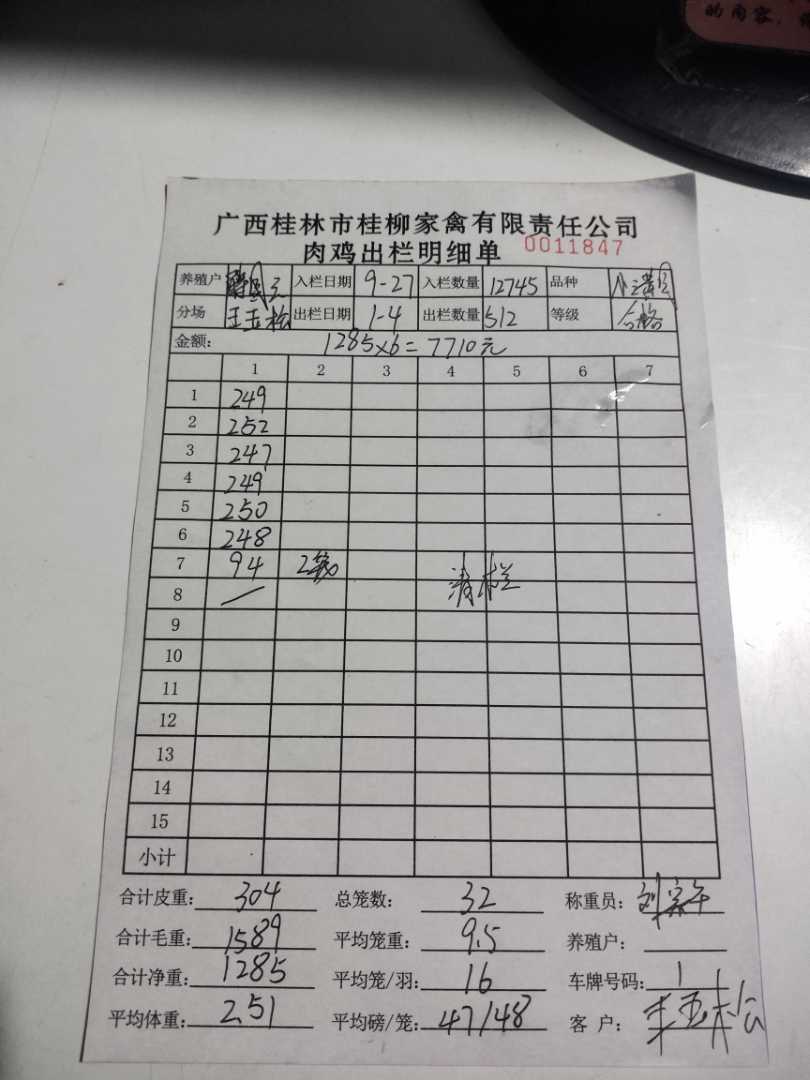 的内容,
广西桂林市桂柳家禽有限责任公司
肉鸡出栏明细单 0011847
养殖户 入栏日期 9-27 入栏数量 12745 品种
分场 王玉松 出栏日期 1-4 出栏数量 512 等级 合格
金额: 1285×6=7710元
1 2 3 4 5 6 7
1 249
2 252
3 247
4 249
5 250
6 248
7 94 2笼 清栏
8
9
10
11
12
13
14
15
小计
合计皮重: 304 总笼数: 32 称重员:
合计毛重: 1589 平均笼重: 9.5 养殖户:
合计净重: 1285 平均笼/羽: 16 车牌号码:
平均体重: 2.51 平均磅/笼: 47/48 客 户: